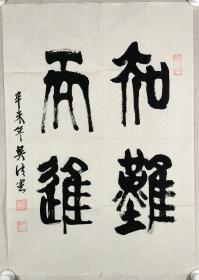 知難
而進
辛未年吳清書